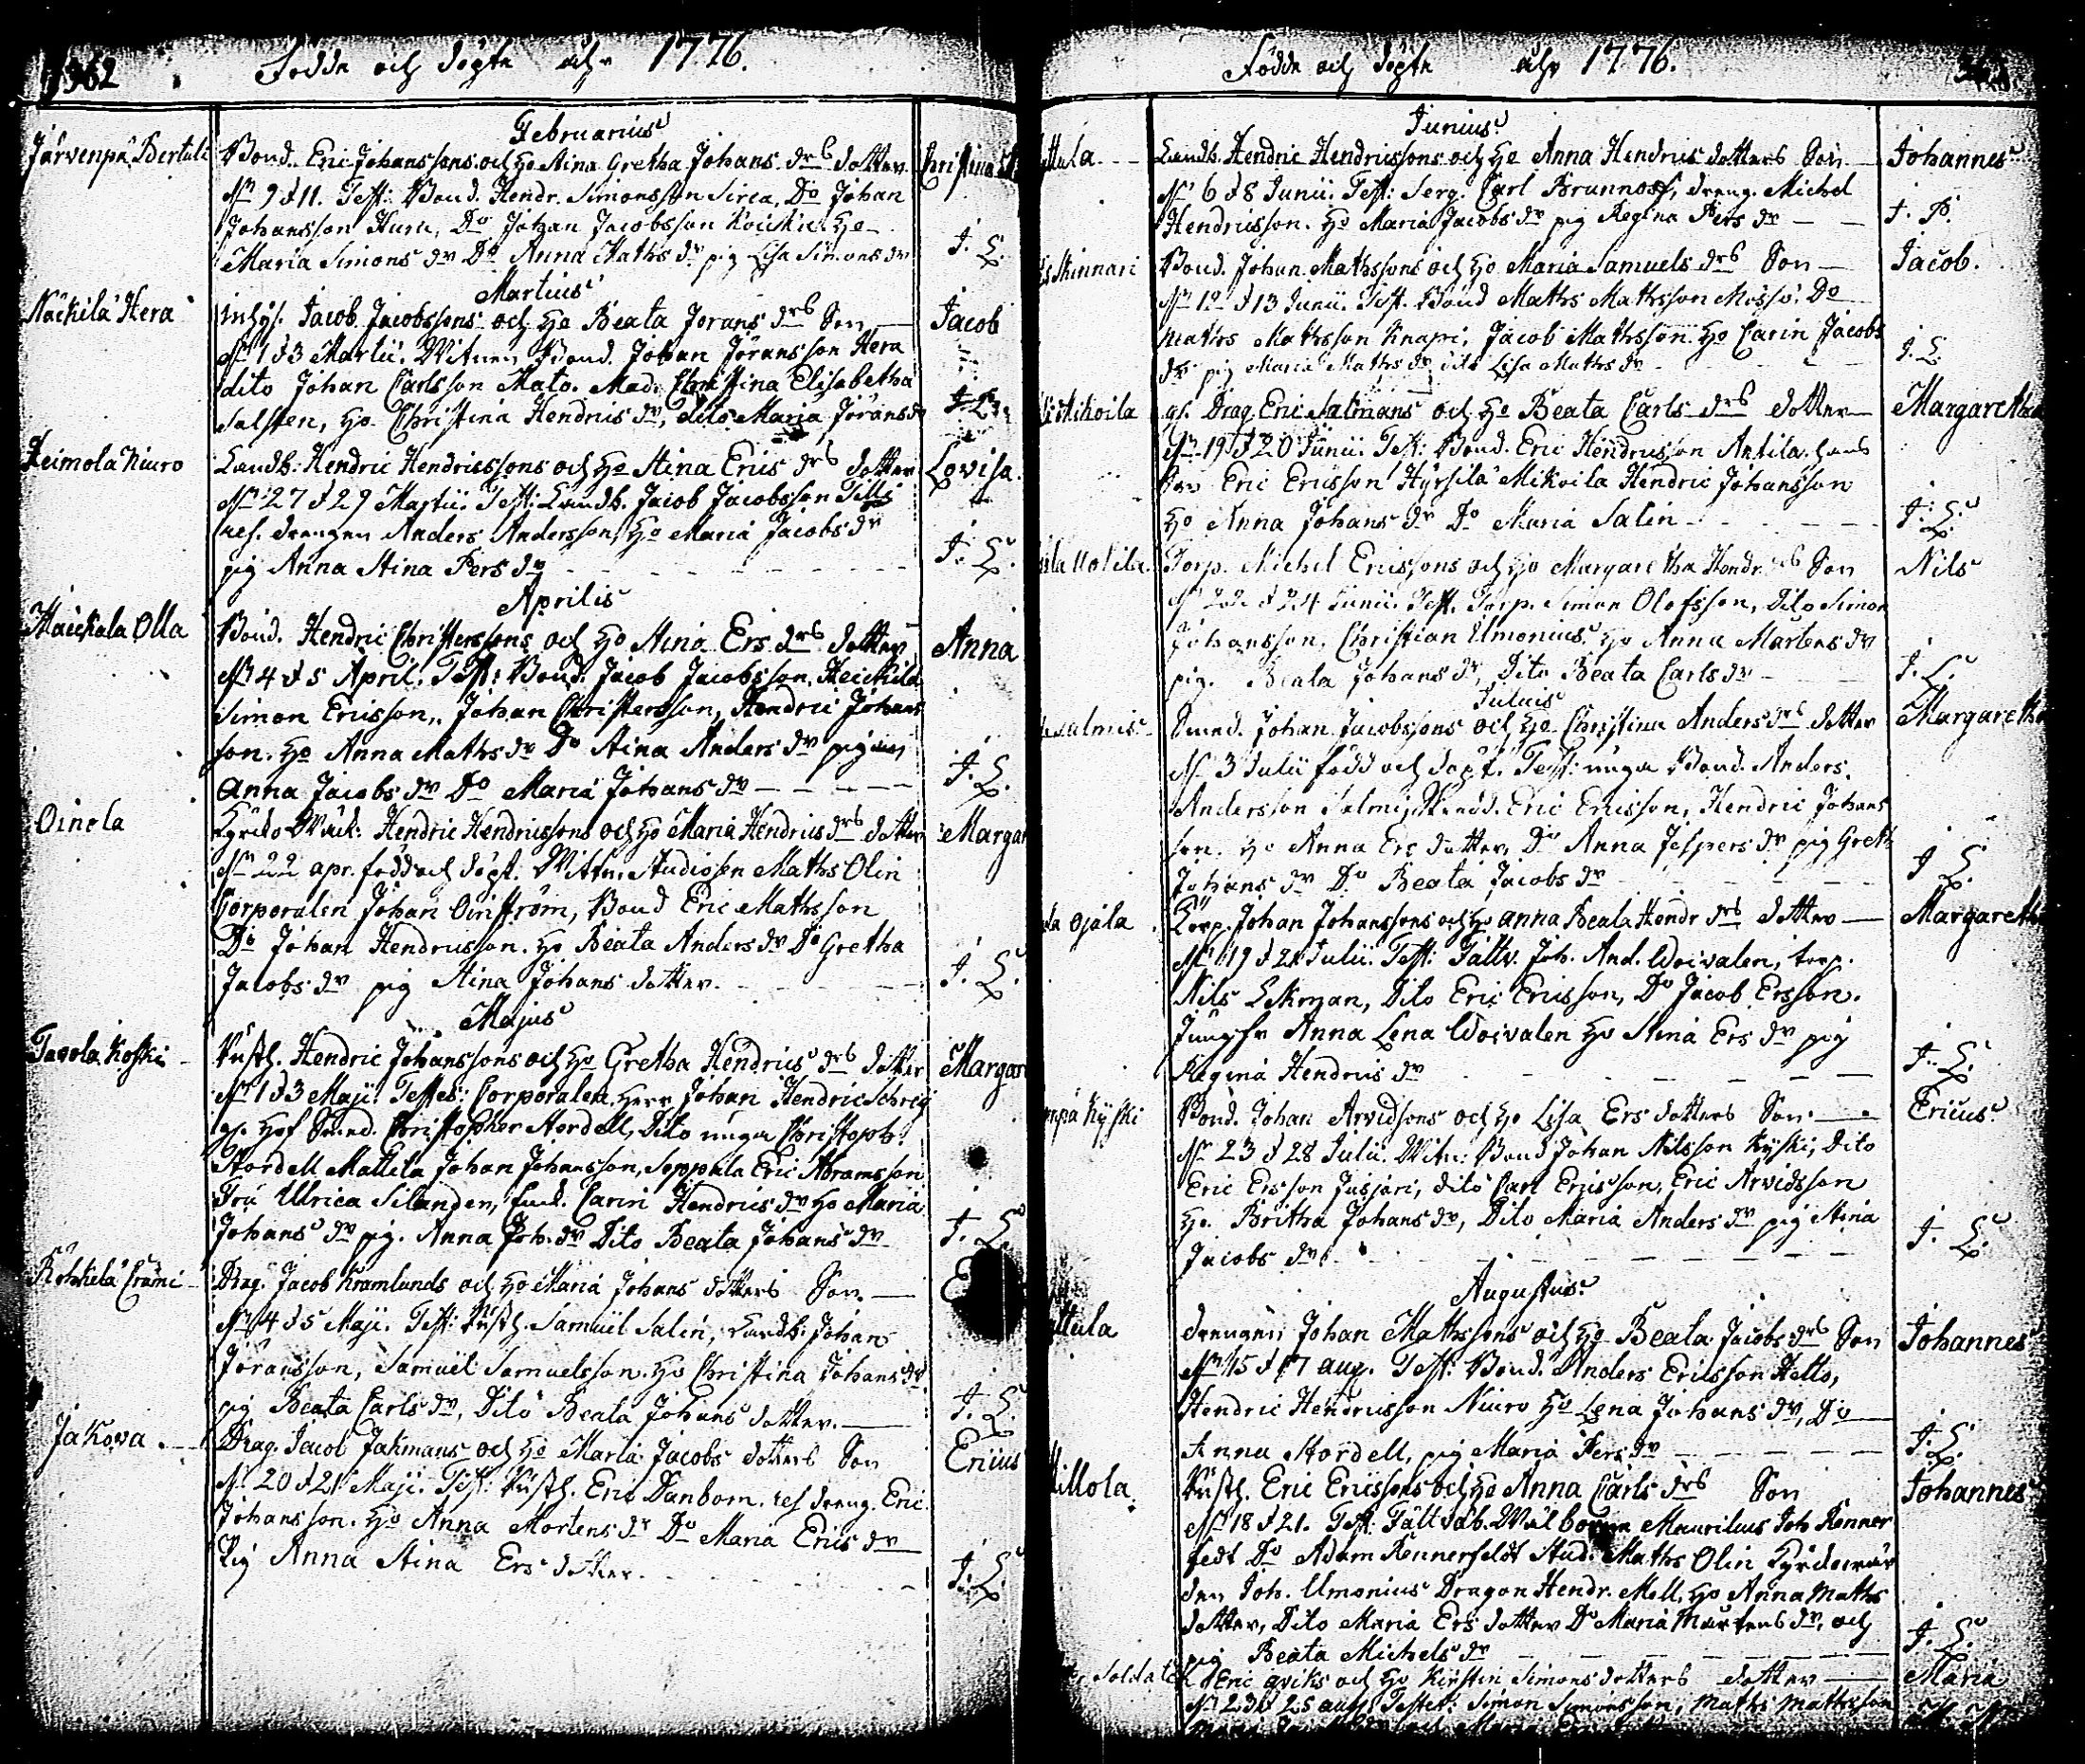 362 Födde och döpte åhr 1776.
Februarius
Järvenpä Bertula Bond. Eric Johanssons och Ho Stina Gretha Johans drs dotter Christina
Nr 9 d 11. Test: Bond. Hendr. Simonsson Sirca, Do Johan
Johansson Huru, Do Johan Jacobsson Ho
Maria Simons dr Do Anna Maths dr pig Lisa Simons dr J. L.
Martius
Näckilä Hera Inhys. Jacob Jacobssons och Ho Beata Jorans drs Son Jacob
Nr 1 d 3 Martii. Vitnen Bond. Johan Joransson Hera
dito Johan Carlsson Mato. Mad. Christina Elisabetha
Salsten, Ho Christina Hendrics dr, dito Maria Jorans dr J. L.
Heimola Niuro Landb. Hendric Hendricssons och Ho Stina Erics drs dotter Lovisa.
Nr 27 d 29 Martii. Test: Landb. Jacob Jacobsson Tilli
drengen Anders Andersson, Ho Maria Jacobs dr
pig Anna Stina Pers dr J. L.
Aprilis
Haickala Olla Bond. Hendric Christerssons och Ho Stina Ers drs dotter Anna
Nr 4 d 5 April. Test: Bond. Jacob Jacobsson, Heickilä
Simon Ericsson, Johan Christersson, Hendric Johans
son. Ho Anna Maths dr Do Stina Anders dr pigan
Anna Jacobs dr Do Maria Johans dr J. L.
Oinola Kyrko Väck: Hendric Hendricssons och Ho Maria Hendrics drs dotter Margar
Nr 22 apr. född och döpt. Vittn. Studiosen Maths Olin
Corporalen Johan Oinström, Bond Eric Mathsson
Do Johan Hendricsson. Ho Beata Anders dr Do Gretha
Jacobs dr pig Stina Johans dotter. J. L.
Majus
Tavola Koski Rusth. Hendric Johanssons och Ho Gretha Hendrics drs dotter Margar
Nr 1 d 3 Maji. Testes: Corporalen Herr Johan Hendric Schreij
gs. Hof Smed. Christopher Nordell, Dito unga Christoph.
Nordell Mattila Johan Johansson, Seppala Eric Abramsson
Fru Ulrica Silander, Carin Hendrics dr Ho Maria
Johans dr pig. Anna Joh. dr Dito Beata Johans dr J. L.
Drag. Jacob Kramlunds och Ho Maria Johans dotters Son. E
Nr 4 d 5 Maji. Test: Rusth. Samuel Salin, Landb: Johan
Joransson, Samuel Samuelsson. Ho Christina Johans dr
pig Beata Carls dr, Dito Beata Johans dotter. J. L.
Jakova. Drag. Jacob Jakmans och Ho Maria Jacobs dotters Son Ericus
Nr 20 d 21 Maji. Test: Rusth. Eric Danbom. dreng. Eric
Johansson. Ho Anna Mortens dr Do Maria Erics dr
Pig Anna Stina Ers dotter. J. L.
Födde och döpte åhr 1776.
Junius
ttula Landb. Hendric Hendricssons och Ho Anna Hendrics dotters Son Johannes
Nr 6 d 8 Junii. Test: Serg. Carl Brunnost, dreng. Michel
Hendricsson. Ho Maria Jacobs dr pig Regina Pers dr J. P.
Skinnari Bond. Johan Mathssons och Ho Maria Samuels drs Son Jacob.
Nr 12 d 13 Junii. Test. Bond Maths Mathsson Do
Maths Mathsson Knapri, Jacob Mathsson. Ho Carin Jacobs
dr pig Maria Maths dr dito Lisa Maths dr J. L.
Mikoila gs. Drag. Eric Salmans och Ho Beata Carls drs dotter Margaretha
Nr 19 d 20 Junii. Test: Bond. Eric Hendricsson Antila hans
Son Eric Ericsson Hyrsilä Mikoila Hendric Johansson
Ho Anna Johans dr Do Maria Salin J. L.
Torp. Michel Ericssons och Ho Margaretha Hendr. drs Son Nils
Nr 22 d 24 Junii. Test. Torp. Simon Olofsson, Dito Simon
Johansson, Christian Umonius Ho Anna Martens dr
pig. Beata Johans dr, Dito Beata Carls dr J. L.
Julius
salmis Smed. Johan Jacobssons och Ho Christina Anders drs dotter Margareth
Nr 3 Julii född och döpt. Test: unga Bond. Anders
Andersson Salmi, Eric Ericsson, Hendric Johans
son. Ho Anna Ers dotter, Do Anna Jespers dr pig Greth
Johans dr Do Beata Jacobs dr J. L.
la Ojala Corp. Johan Johanssons och Ho Anna Beata Hendr drs dotter Margareth
Nr 19 d 21 Julii. Test: Fältv. Joh. And. Woivalen, torp.
Nils Ekman, Dito Eric Ericsson, Do Jacob Ersson.
Jungfr Anna Lena Woivalen Ho Stina Ers dr pig
Regina Hendrics dr J. L.
mpä Kyski Bond. Johan Arvidssons och Ho Lisa Ers dotters Son Ericus
Nr 23 d 28 Julii. Vitn: Bond Johan Nilsson Kyski, Dito
Eric Ersson Jusjari, dito Carl Ericsson, Eric Arvidsson
Ho. Britha Johans dr, Dito Maria Anders dr pig Stina
Jacobs dr. J. L.
Augustus
ttula drengen Johan Mathssons och Ho Beata Jacobs drs Son Johannes
Nr 15 d 17 aug. Test: Bond. Anders Ericsson Hello,
Hendric Hendricsson Niuro Ho Lena Johans dr, Do
Anna Nordell, pig Maria Pers dr J. L.
illola Rusth. Eric Ericssons och Ho Anna Carls drs Son Johannes
Nr 18 d 21. Test: Fältväb. Välborne Mauritius Joh Renner
feldt Do Adam Rennerfeldt Stud. Maths Olin Kyrckowär
den Joh. Umonius Dragon Hendr. Mell, Ho Anna Maths
dotter, Dito Maria Ers dotter Do Maria Martens dr, och
pig Beata Michels dr J. L.
Soldaten Eric Qviks och Ho Kirstin Simons dotters dotter Maria
Nr 23 d 25 aug. Testes: Simon Simonsson, Maths Mathsson